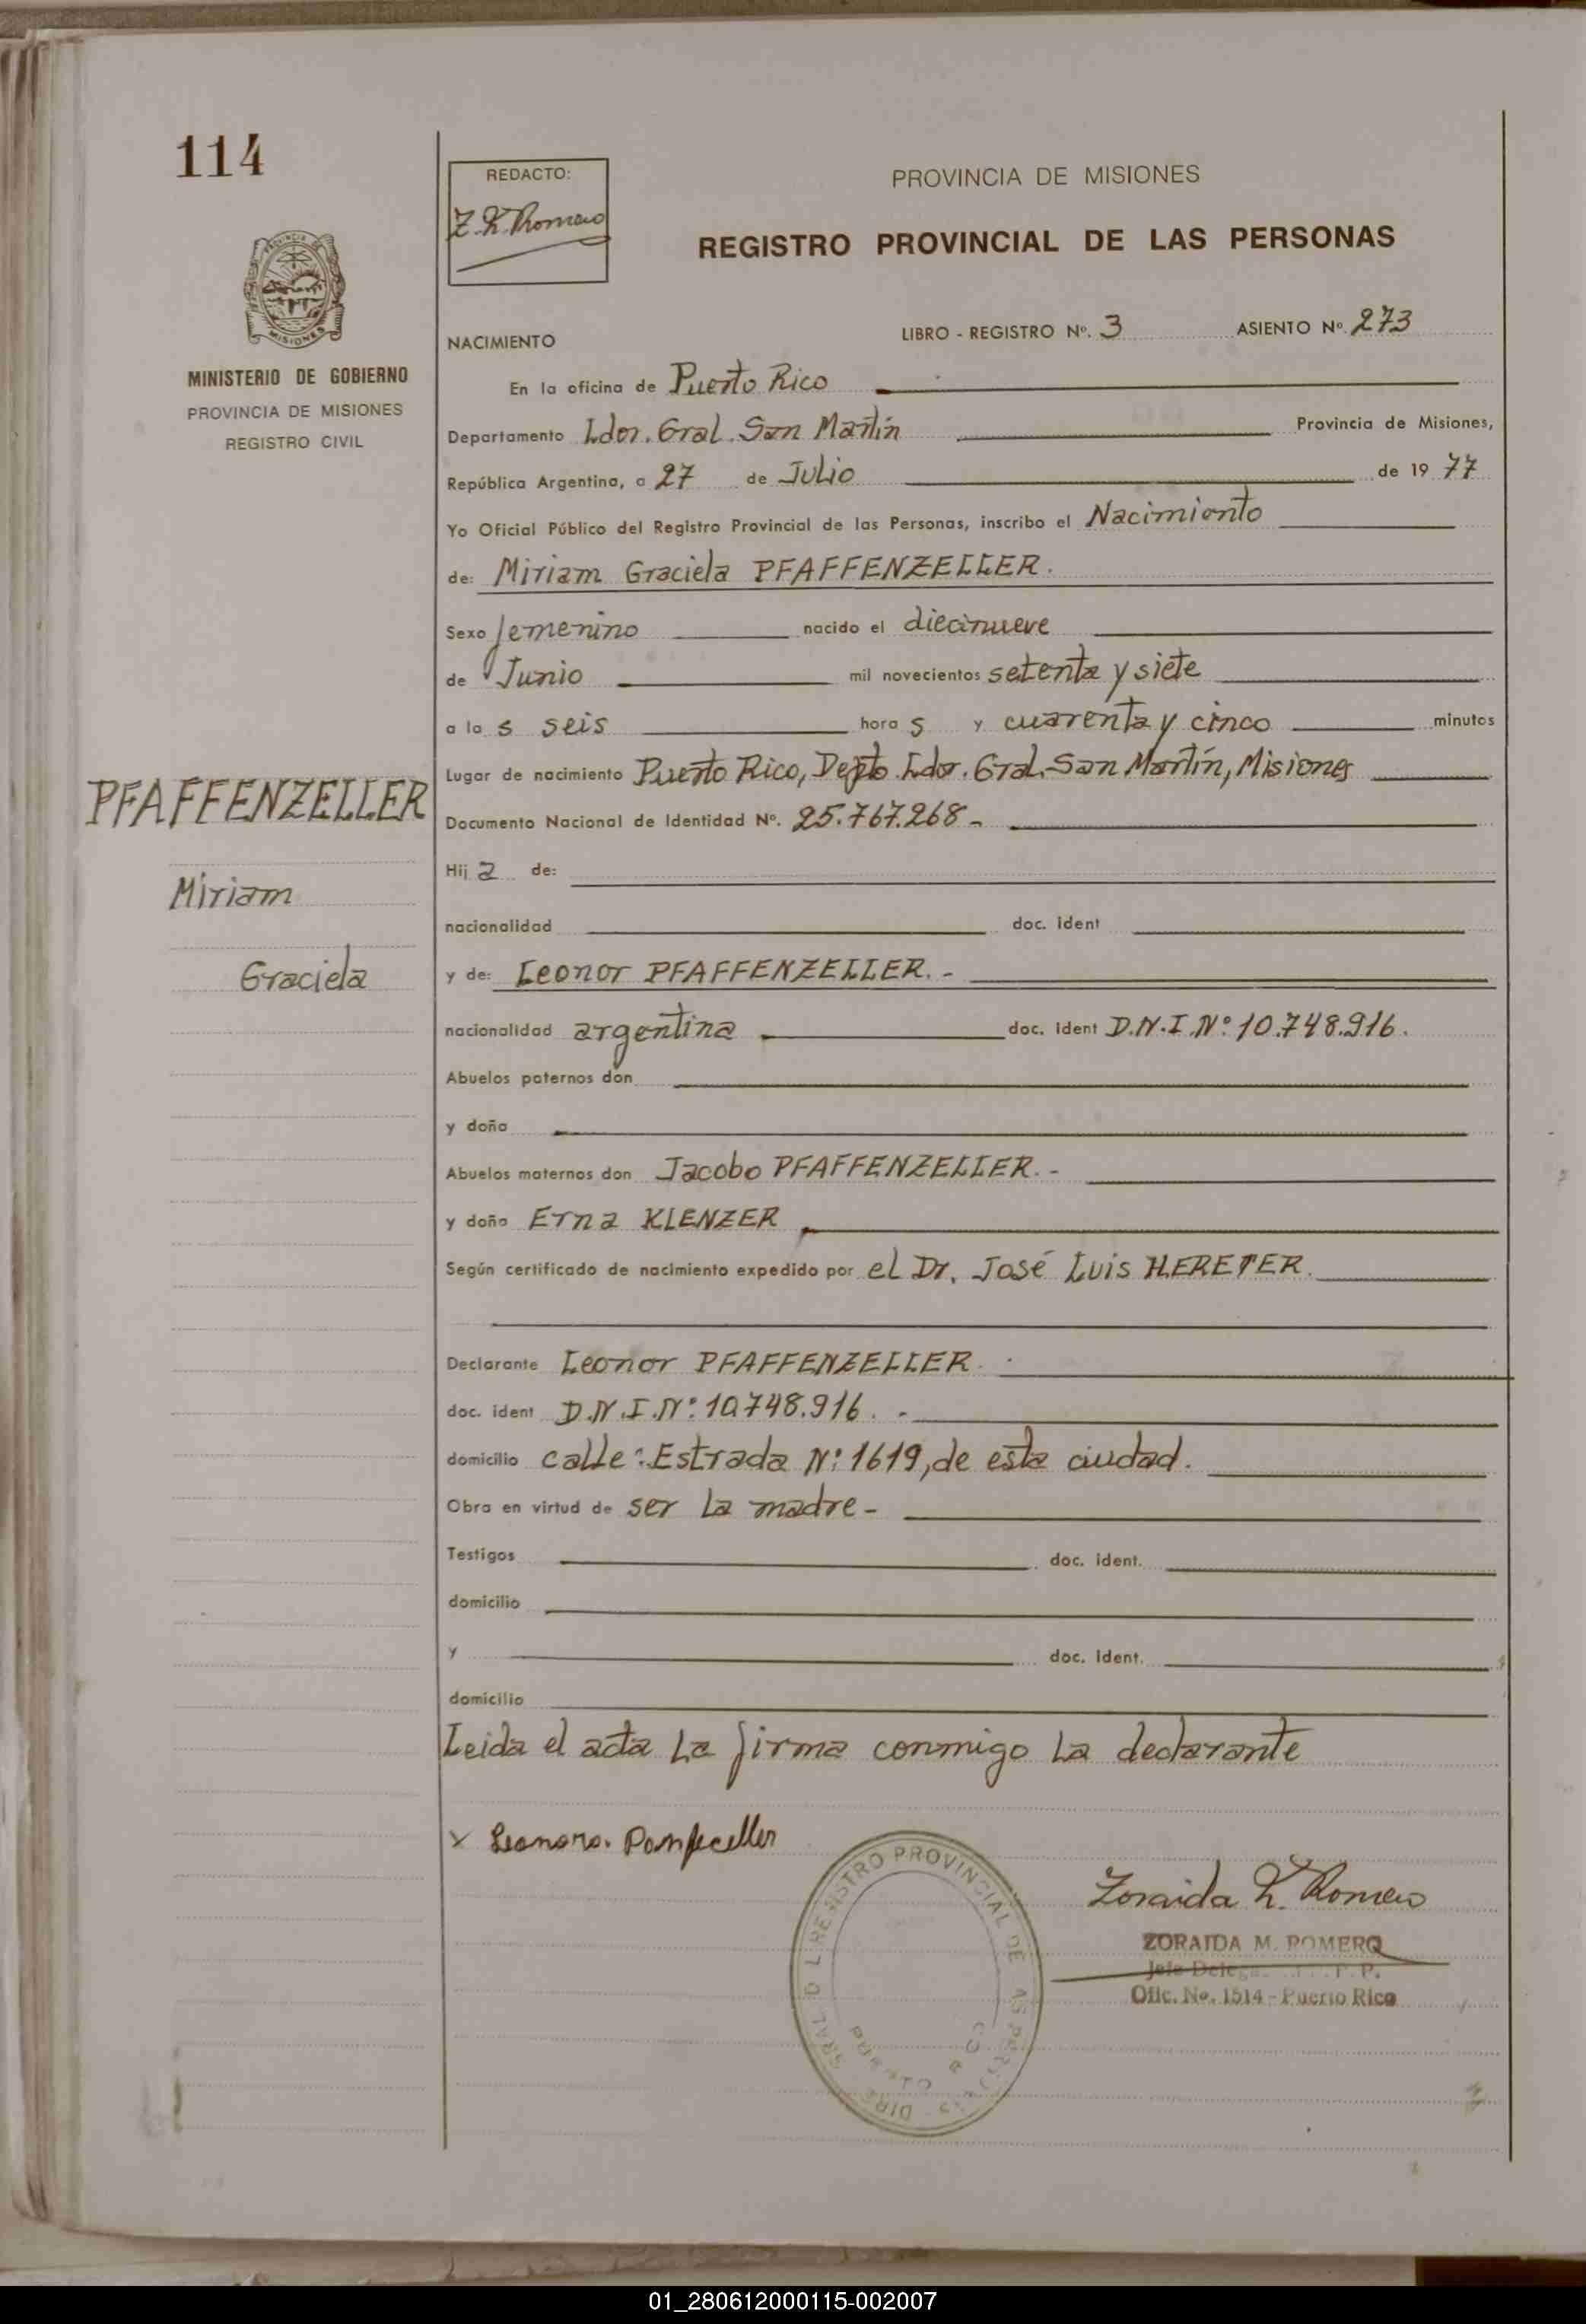 114
REDACTO:
Z. K. Romero
PROVINCIA DE MISIONES
REGISTRO PROVINCIAL DE LAS PERSONAS
MINISTERIO DE GOBIERNO
PROVINCIA DE MISIONES
REGISTRO CIVIL
NACIMIENTO LIBRO - REGISTRO Nº. 3 ASIENTO Nº. 273
En la oficina de Puerto Rico
Departamento Ldor. Gral. San Martín Provincia de Misiones,
República Argentina, a 27 de Julio de 19 77
Yo Oficial Público del Registro Provincial de las Personas, inscribo el Nacimiento
de: Miriam Graciela PFAFFENZELLER.
Sexo femenino nacido el diecinueve
de Junio mil novecientos setenta y siete
a la s seis hora s y cuarenta y cinco minutos
Lugar de nacimiento Puerto Rico, Depto. Ldor. Gral. San Martín, Misiones
PFAFFENZELLER
Miriam
Graciela
Documento Nacional de Identidad Nº. 25.767.268-
Hij a de:
nacionalidad doc. ident
y de: Leonor PFAFFENZELLER.-
nacionalidad argentina doc. ident D.N.I.Nº 10.748.916.
Abuelos paternos don
y doña
Abuelos maternos don Jacobo PFAFFENZELLER.-
y doña Erna KLENZER
Según certificado de nacimiento expedido por el Dr. José Luis HERETER.
Declarante Leonor PFAFFENZELLER.
doc. ident D.N.I.Nº: 10.748.916. -
domicilio calle: Estrada Nº: 1619, de esta ciudad.
Obra en virtud de ser la madre-
Testigos doc. ident.
domicilio
y doc. ident.
domicilio
Leida el acta la firma conmigo la declarante
x Leonora.
Zoraida K. Romero
ZORAIDA M. ROMERO
Ofic. No. 1514 - Puerto Rico
REGISTRO PROVINCIAL DE
PUERTO RICO
01_280612000115-002007